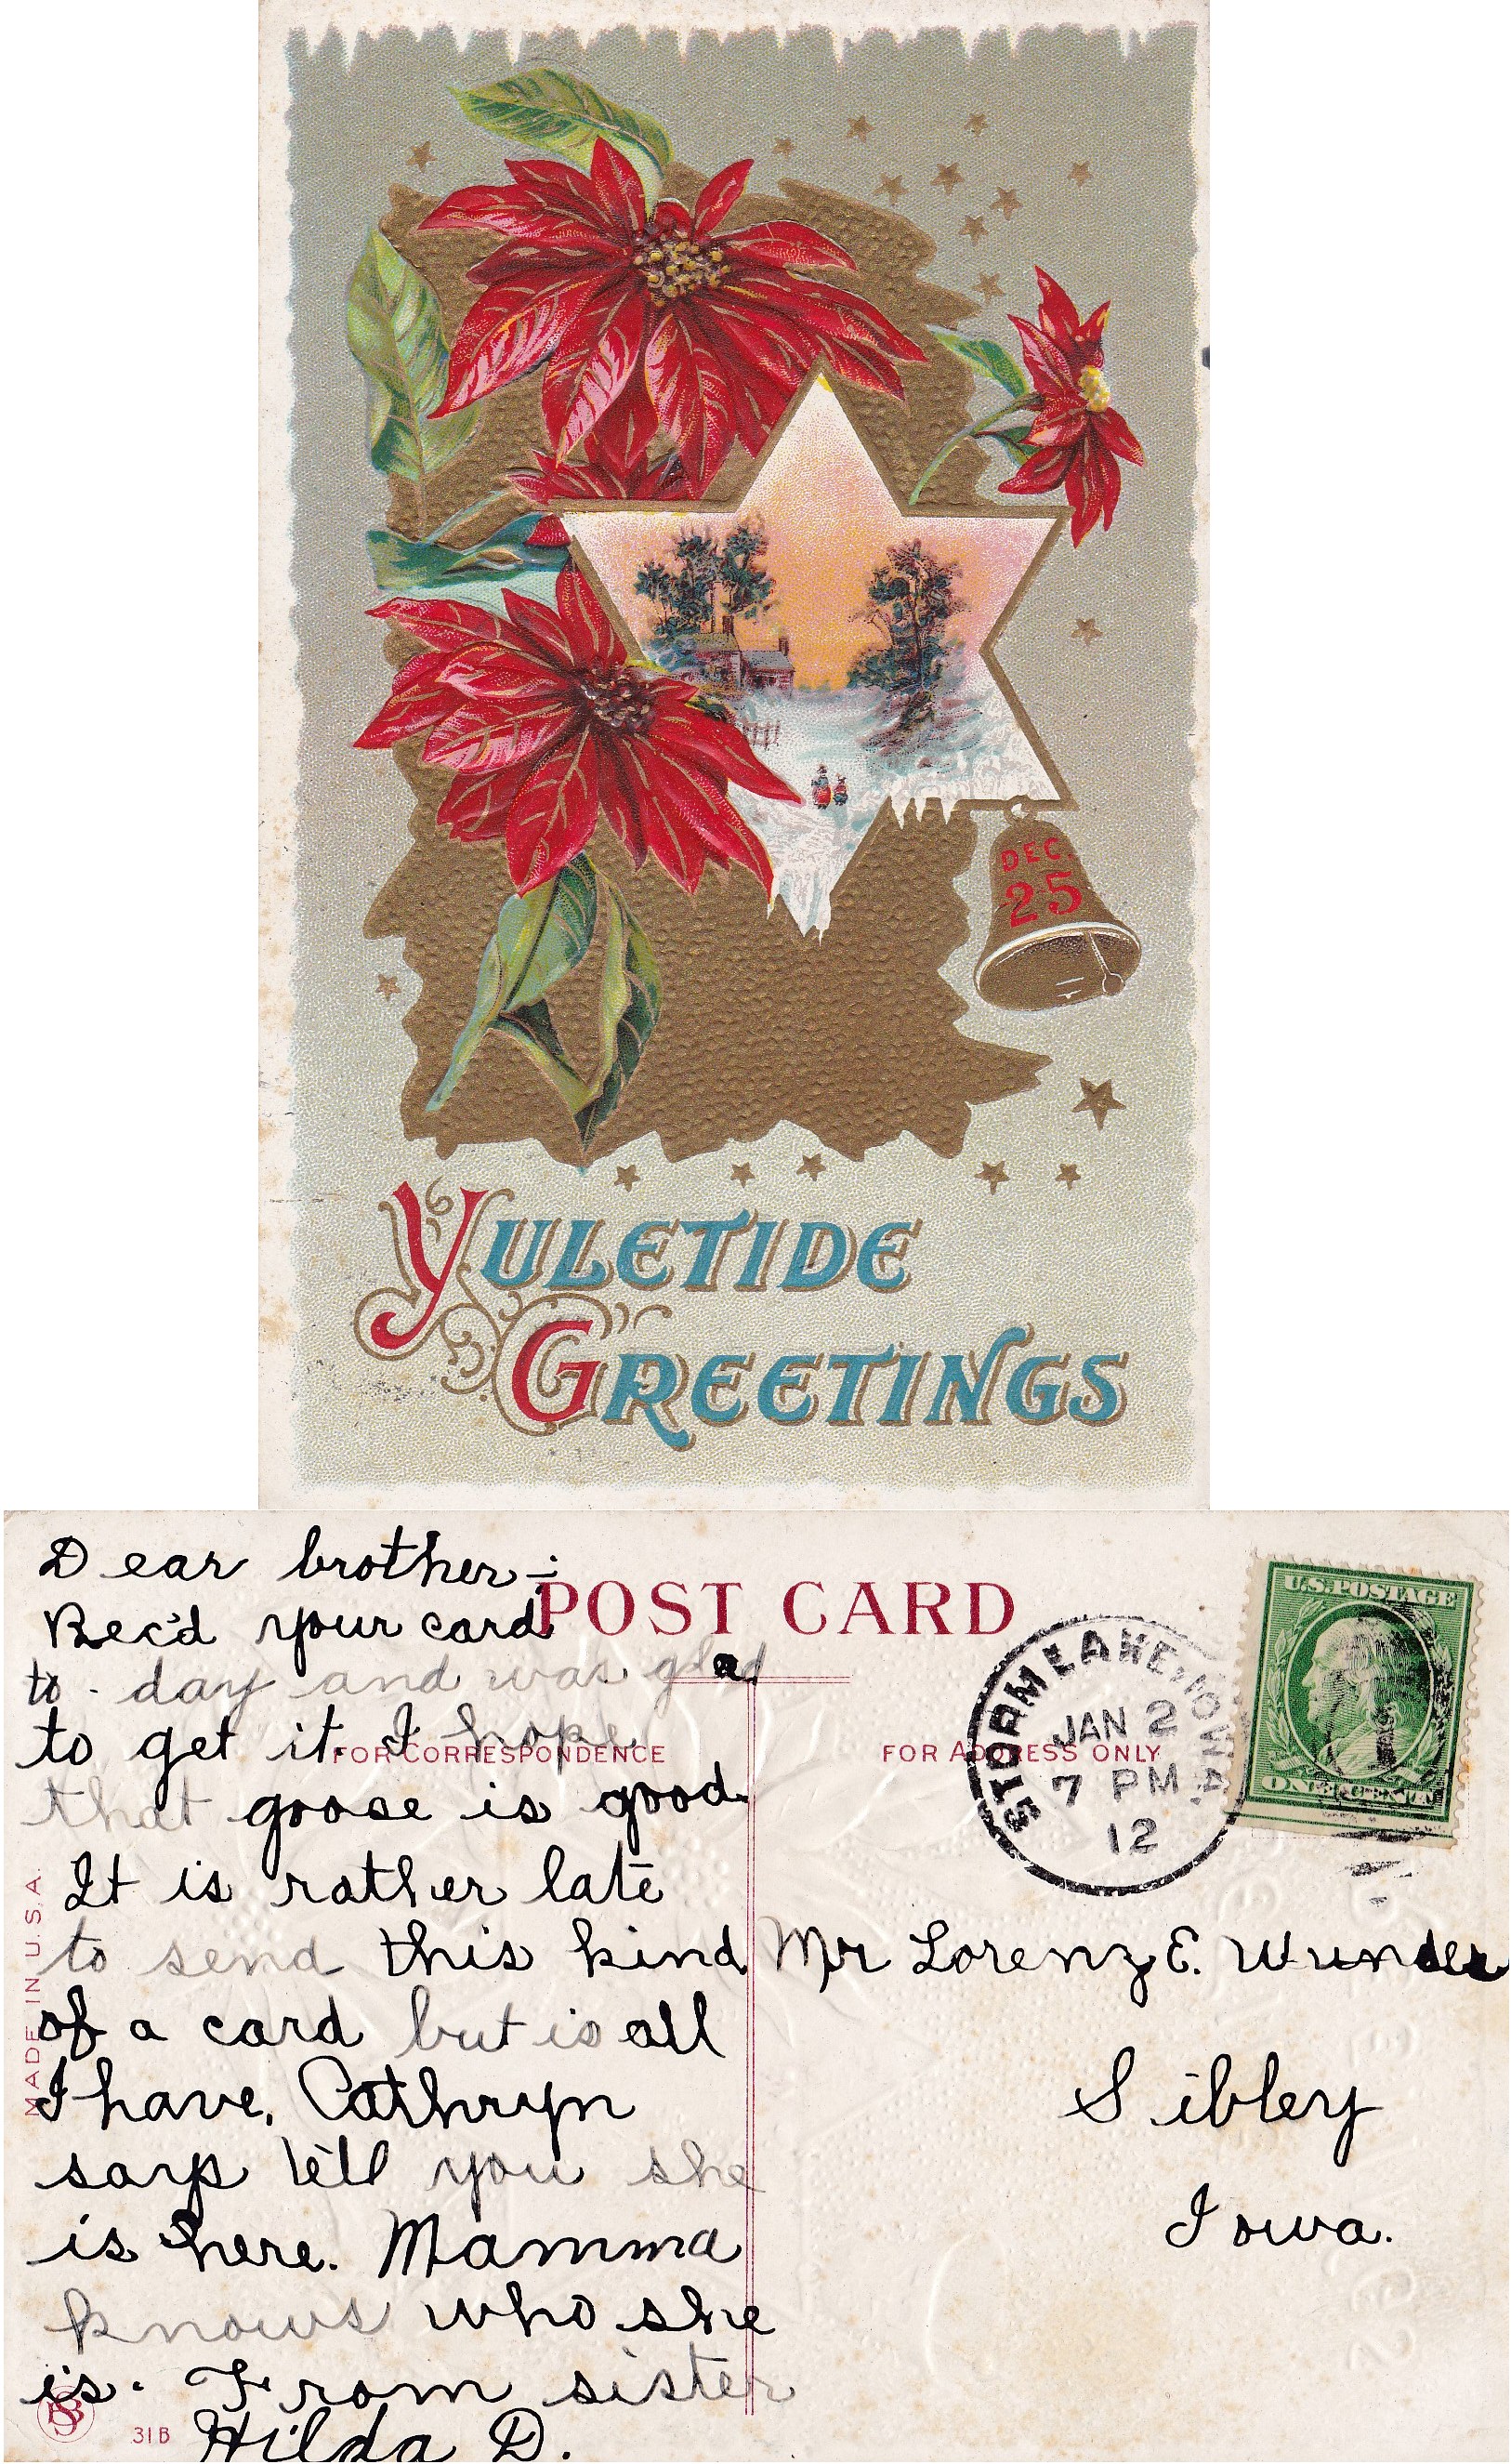 DEC.
25
YULETIDE
GREETINGS
Dear brother-:
Rec'd your card
to-day and was glad
to get it. I hope
that goose is good.
It is rather late
to send this kind
of a card but is all
I have. Cathryn
says tell you she
is here. Mamma
knows who she
is. From sister
Hilda D.
POST CARD
FOR CORRESPONDENCE
FOR ADDRESS ONLY
STORM LAKE, IOWA.
JAN 2
7 PM
12
U.S. POSTAGE
ONE CENT
Mr Lorenz E. Wunder
Sibley
Iowa.
MADE IN U.S.A.
SB
31B